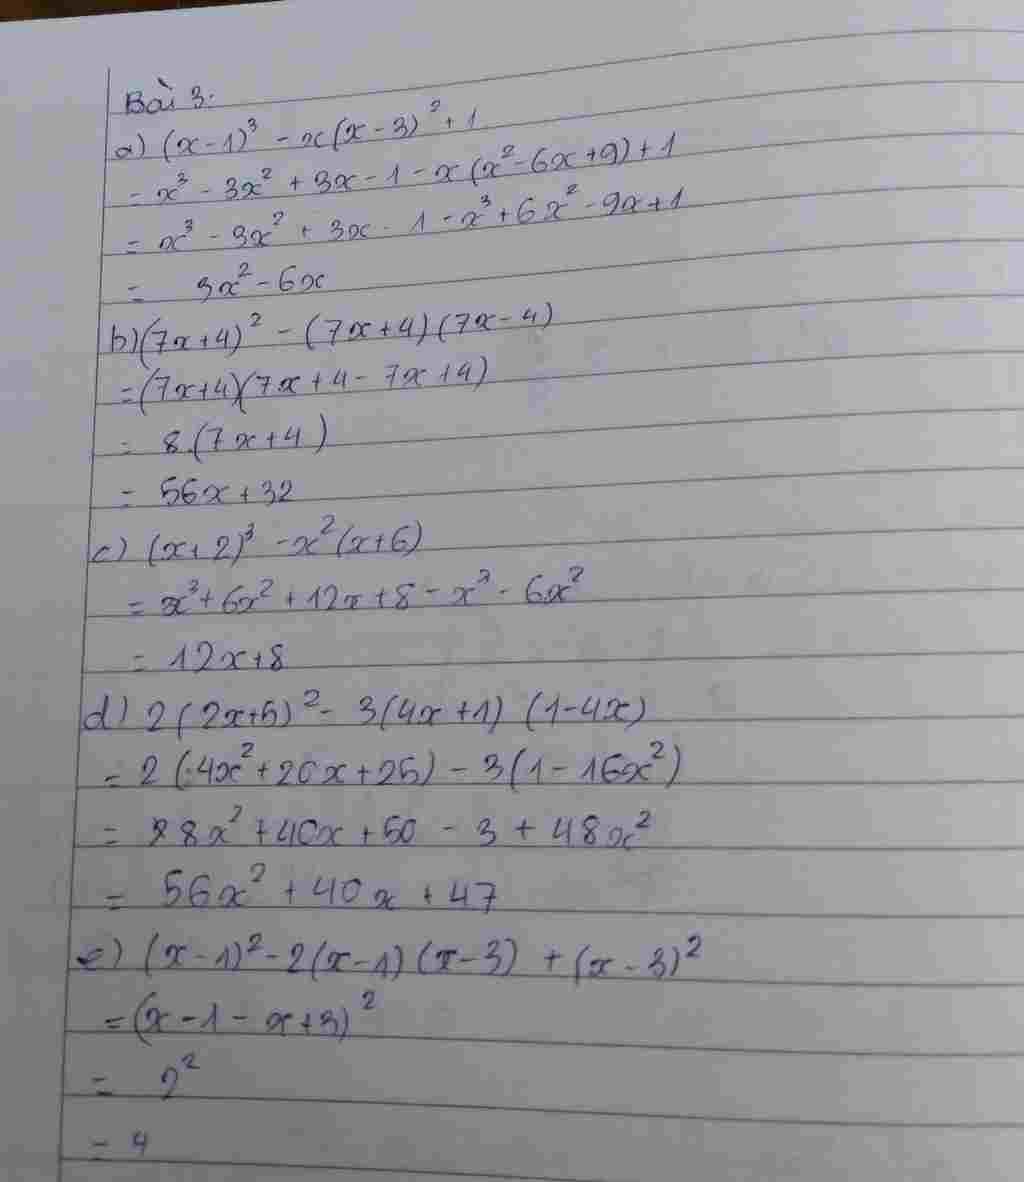 Bài 3:
a) (x-1)³ - x(x-3)² + 1
= x³ - 3x² + 3x - 1 - x(x² - 6x + 9) + 1
= x³ - 3x² + 3x - 1 - x³ + 6x² - 9x + 1
= 3x² - 6x
b) (7x+4)² - (7x+4)(7x-4)
= (7x+4)(7x+4 - 7x+4)
= 8.(7x+4)
= 56x + 32
c) (x+2)³ - x²(x+6)
= x³ + 6x² + 12x + 8 - x³ - 6x²
= 12x + 8
d) 2(2x+5)² - 3(4x+1)(1-4x)
= 2(4x² + 20x + 25) - 3(1 - 16x²)
= 8x² + 40x + 50 - 3 + 48x²
= 56x² + 40x + 47
e) (x-1)² - 2(x-1)(x-3) + (x-3)²
= (x-1-x+3)²
= 2²
= 4